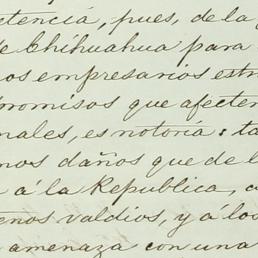 etencia, pues, de la
e Chihuahua para
os empresarios estr
romisos que afecten
nales, es notoria: ta
mos daños que de l
á la Republica, c
enos valdios, y á los
amenaza con una